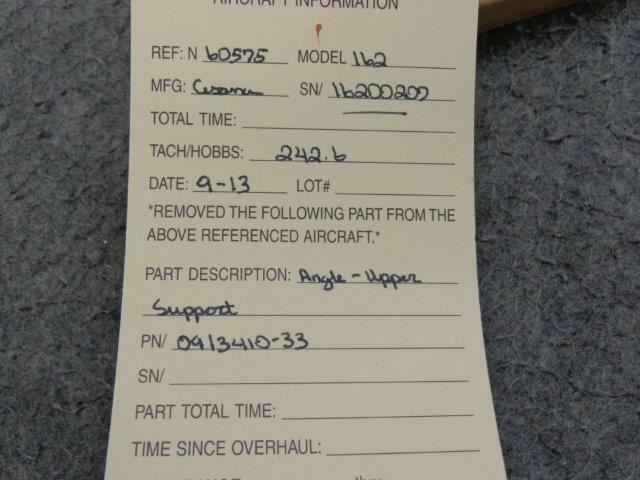 AIRCRAFT INFORMATION
REF: N 60575 MODEL 162
MFG: Cessna SN/ 16200207
TOTAL TIME:
TACH/HOBBS: 242.6
DATE: 9-13 LOT#
*REMOVED THE FOLLOWING PART FROM THE
ABOVE REFERENCED AIRCRAFT.*
PART DESCRIPTION: Angle - Upper
Support
PN/ 0913410-33
SN/
PART TOTAL TIME:
TIME SINCE OVERHAUL: